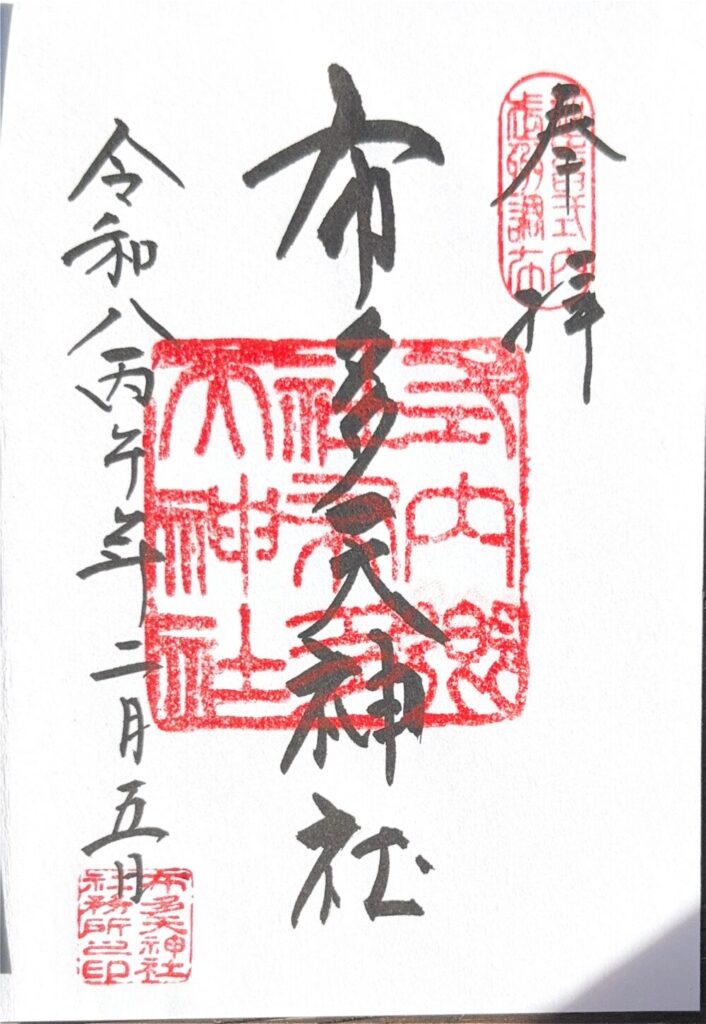 奉拝
延喜式内
布多天神社
式内郷
社布多
天神社
令和八丙午年二月五日
布多天神社
社務所之印